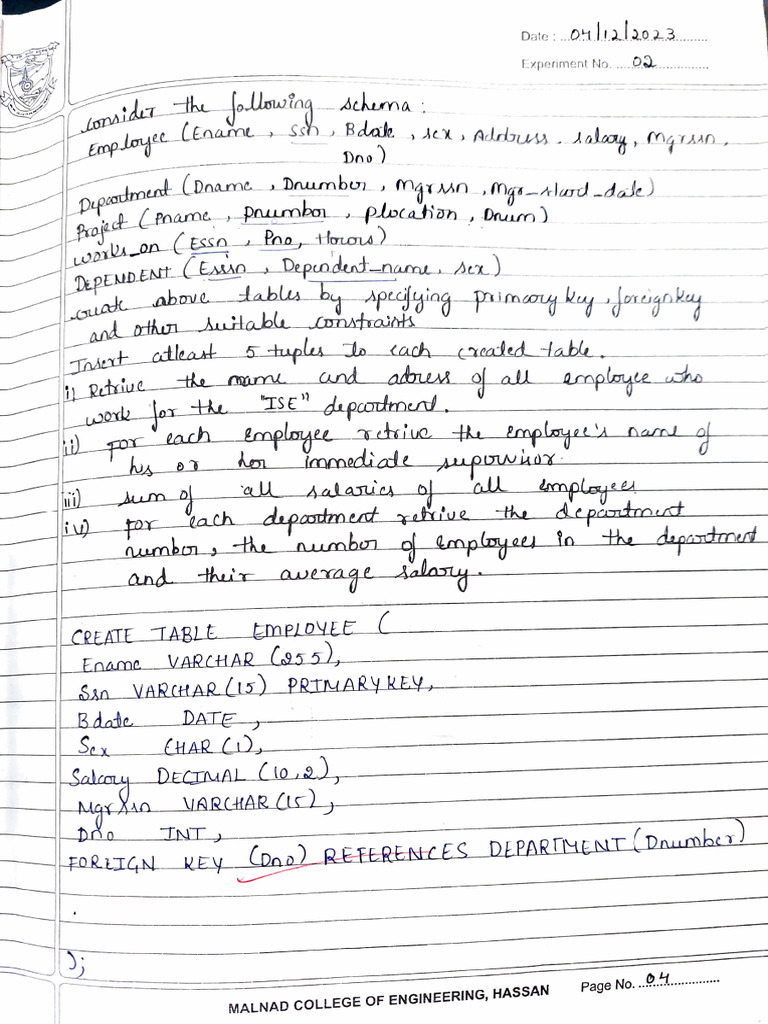 Date : 04/12/2023
Experiment No. 02
Consider the following schema :
Employee (Ename , Ssn , Bdate , sex , Address . salary, Mgrssn,
Dno)
Department (Dname , Dnumber , Mgrssn , Mgr_start_date)
Project (Pname , Pnumber , plocation , Dnum)
Works_on (Essn , Pno, Hours)
DEPENDENT (Essn , Dependent_name, sex)
create above tables by specifying primary key, foreignkey
and other suitable constraints
Insert atleast 5 tuples to each created table.
i) Retrive the name and adress of all employee who
work for the "ISE" department.
ii) for each employee retrive the employee's name of
his or her immediate supervisor.
iii) sum of all salaries of all employees
iv) for each department retrive the department
number, the number of employees in the department
and their average salary.
CREATE TABLE EMPLOYEE (
Ename VARCHAR (255),
Ssn VARCHAR (15) PRIMARYKEY,
Bdate DATE ,
Sex CHAR (1),
Salary DECIMAL (10,2),
MgrSsn VARCHAR (15),
Dno INT ,
FOREIGN KEY (Dno) REFERENCES DEPARTMENT (Dnumber)
.
);
MALNAD COLLEGE OF ENGINEERING, HASSAN Page No. 04